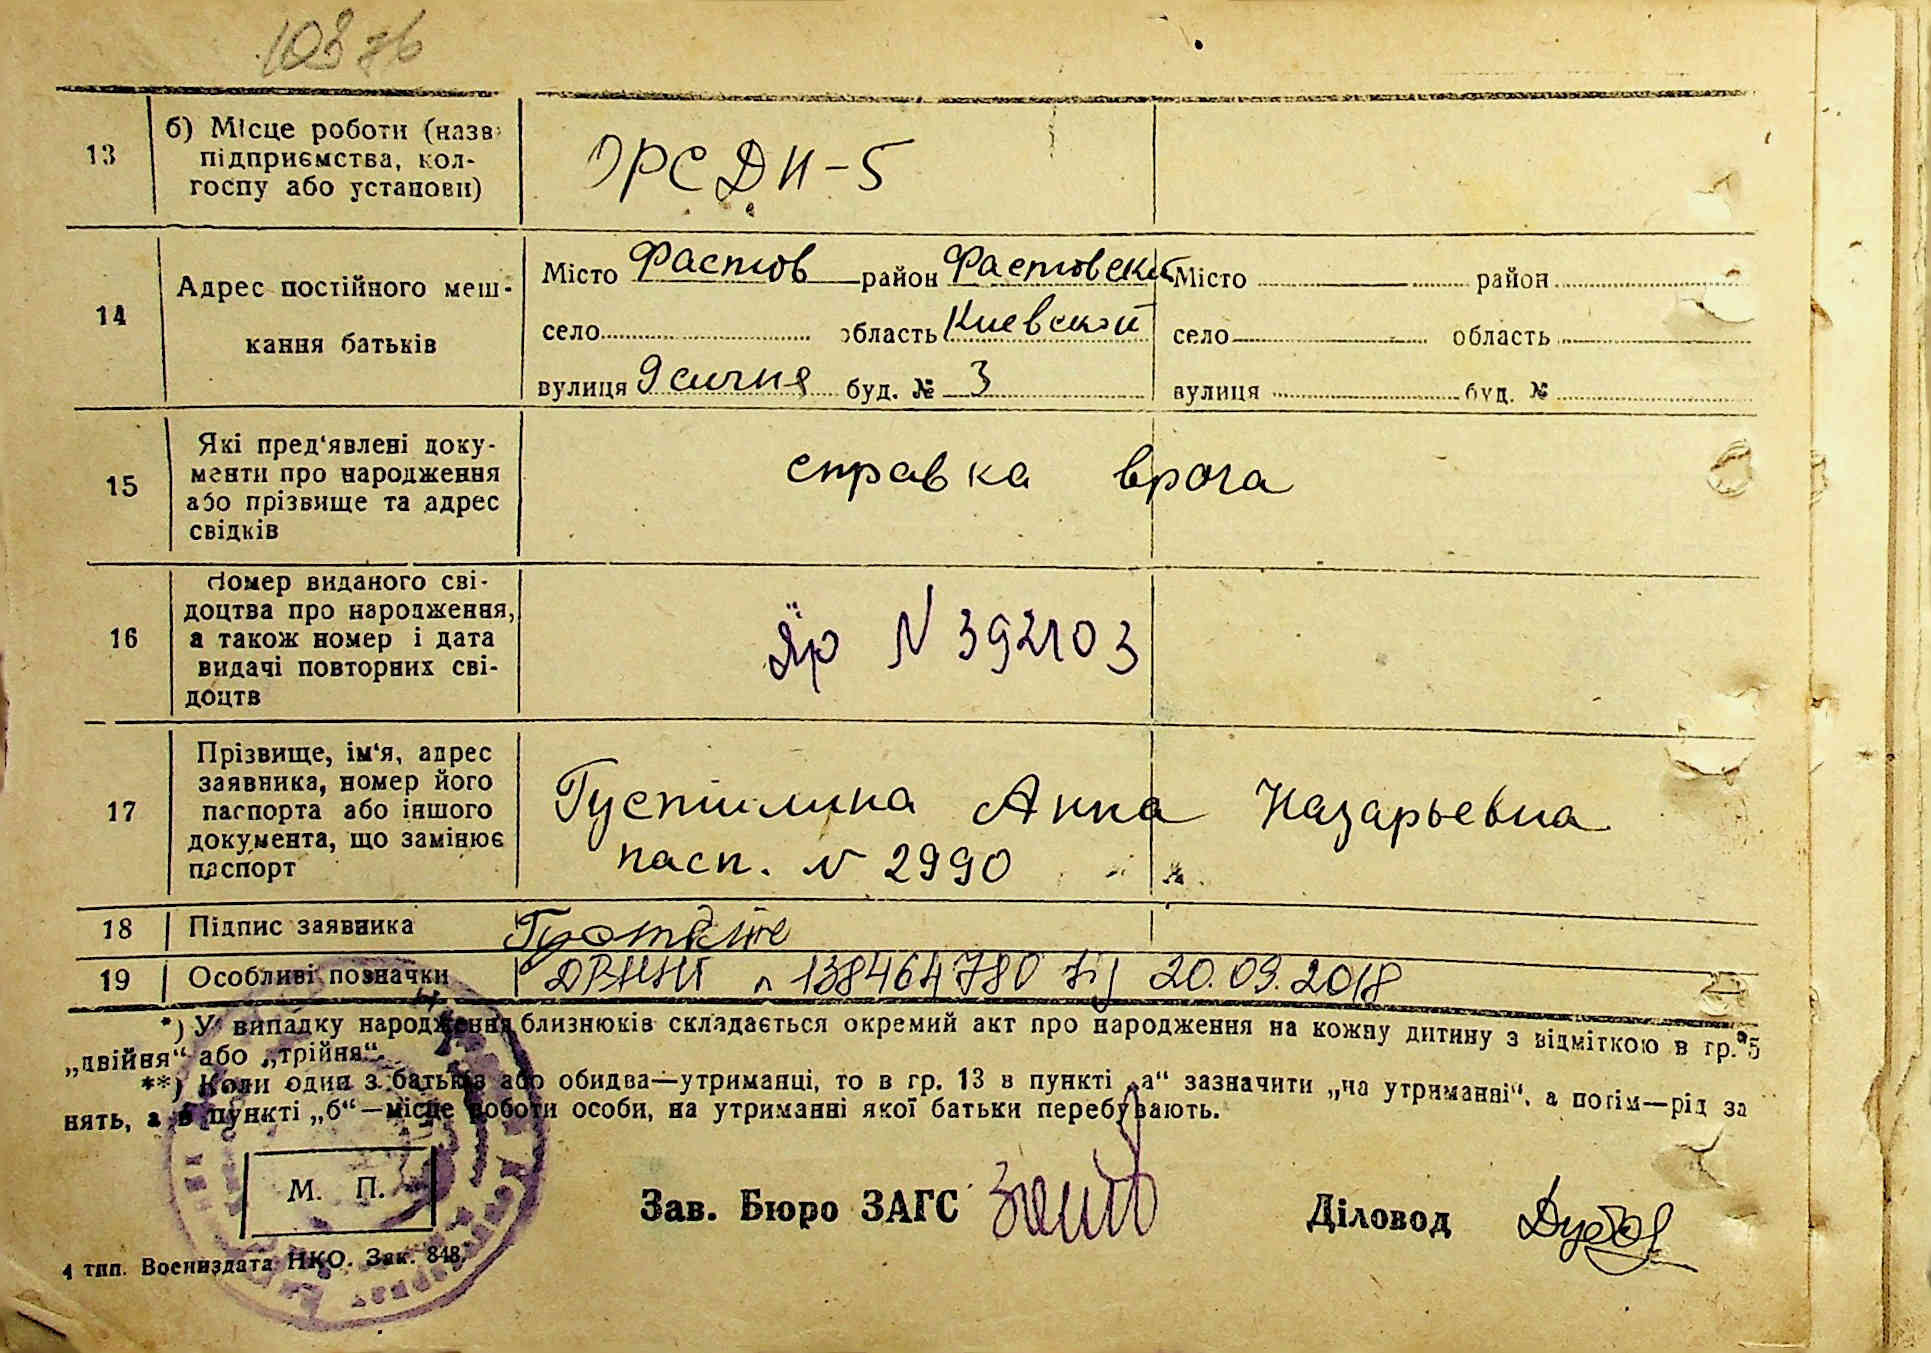 103 зв
13
б) Місце роботи (назв
підприємства, кол-
госпу або установи)
ОРС ДН-5
14
Адрес постійного меш-
кання батьків
Місто Фастов район Фастовский
село область Киевской
вулиця 9 сичня буд. № 3
Місто район
село область
вулиця буд. №
15
Які пред'явлені доку-
менти про народження
або прізвище та адрес
свідків
справка врача
16
Номер виданого сві-
доцтва про народження,
а також номер і дата
видачі повторних сві-
доцтв
N 392103
17
Прізвище, ім'я, адрес
заявника, номер його
паспорта або іншого
документа, що замінює
паспорт
Густилина Анна Назарьевна
пасп. N 2990
18 Підпис заявника
19 Особливі позначки
138464780 20.09.2018
*) У випадку народження близнюків складається окремий акт про народження на кожну дитину з відміткою в гр. 5
„двійня“ або „трійня“.
**) Коли один з батьків або обидва—утриманці, то в гр. 13 в пункті „а“ зазначити „на утриманні“, а потім—рід за
нять, а в пункті „б“—місце роботи особи, на утриманні якої батьки перебувають.
М. П.
Зав. Бюро ЗАГС
Діловод
4 тип. Воениздата НКО. Зак. 848.